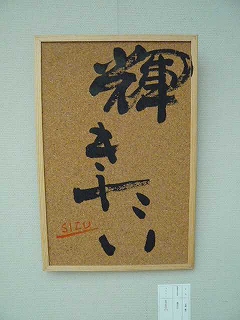 輝きたい
SIZU